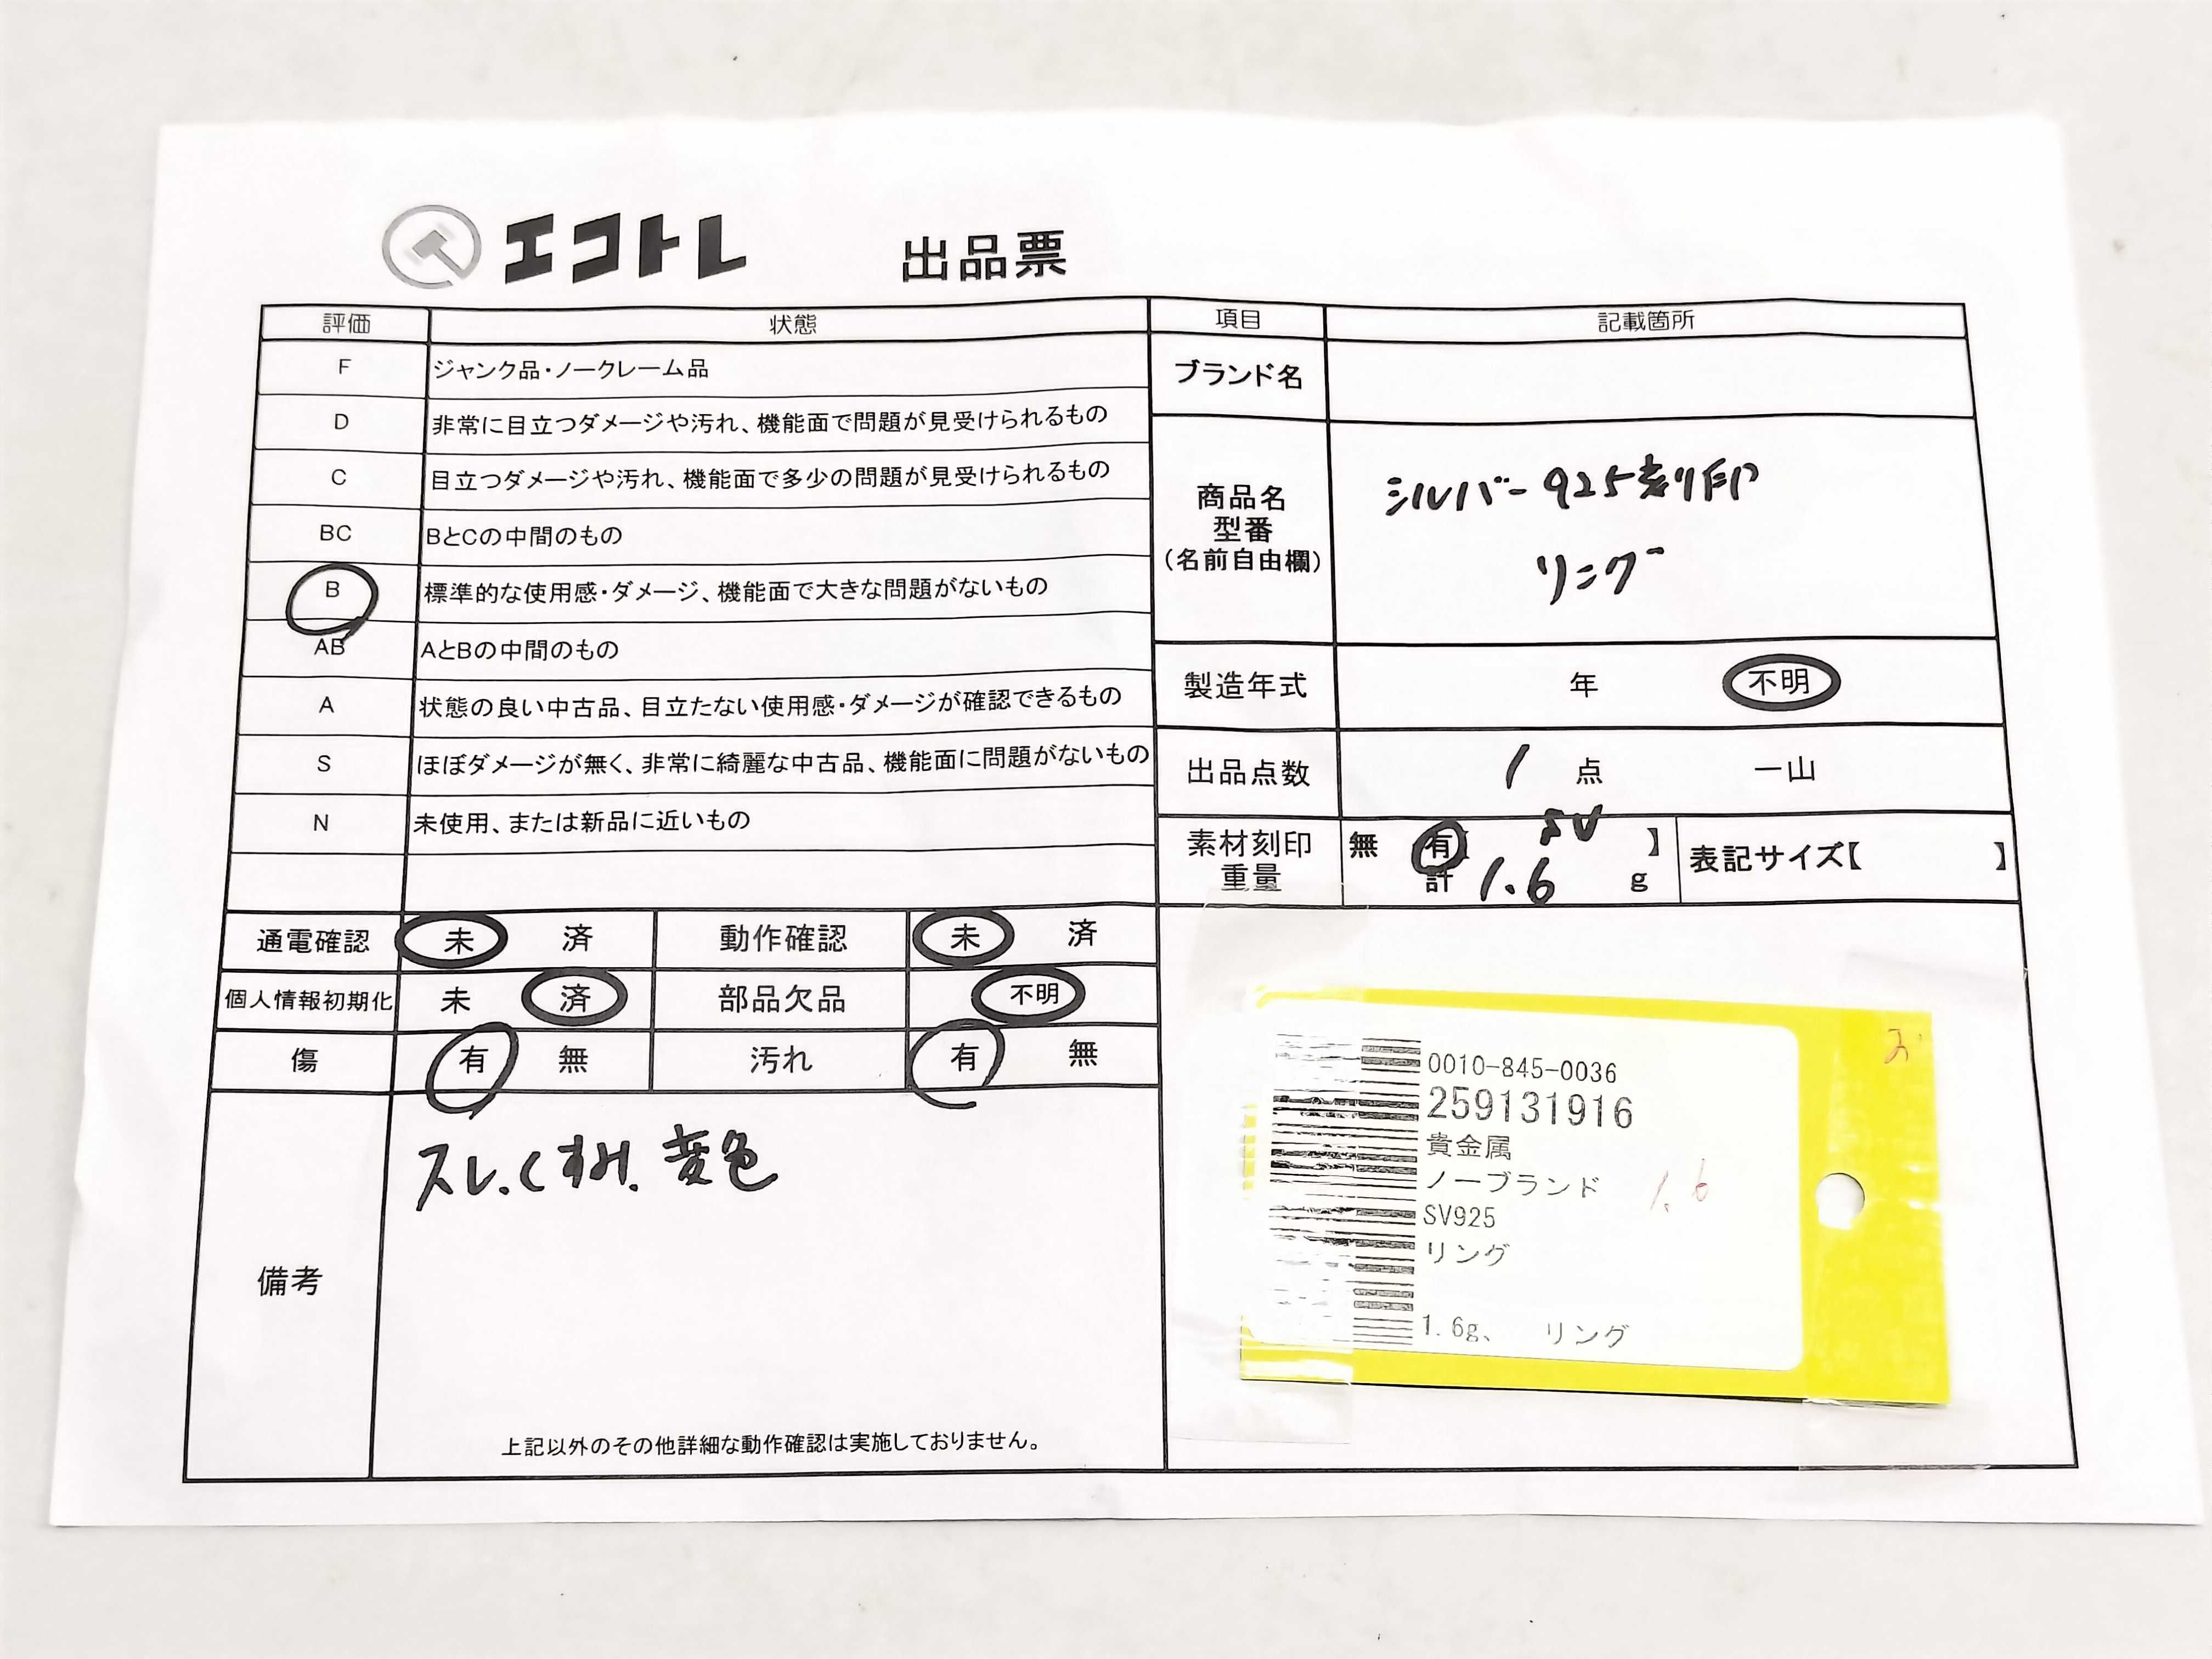 エコトレ 出品票
評価 状態
F ジャンク品・ノークレーム品
D 非常に目立つダメージや汚れ、機能面で問題が見受けられるもの
C 目立つダメージや汚れ、機能面で多少の問題が見受けられるもの
BC BとCの中間のもの
B 標準的な使用感・ダメージ、機能面で大きな問題がないもの
AB AとBの中間のもの
A 状態の良い中古品、目立たない使用感・ダメージが確認できるもの
S ほぼダメージが無く、非常に綺麗な中古品、機能面に問題がないもの
N 未使用、または新品に近いもの
通電確認 未 済 動作確認 未 済
個人情報初期化 未 済 部品欠品 不明
傷 有 無 汚れ 有 無
備考
スレ.くすみ.変色
上記以外のその他詳細な動作確認は実施しておりません。
項目 記載箇所
ブランド名
商品名
型番
(名前自由欄)
シルバー925刻印
リング
製造年式 年 不明
出品点数 1 点 一山
素材刻印 無 有 SV 】
重量 計 1.6 g
表記サイズ【 】
0010-845-0036
259131916
貴金属
ノーブランド 1.6
SV925
リング
1.6g、 リング